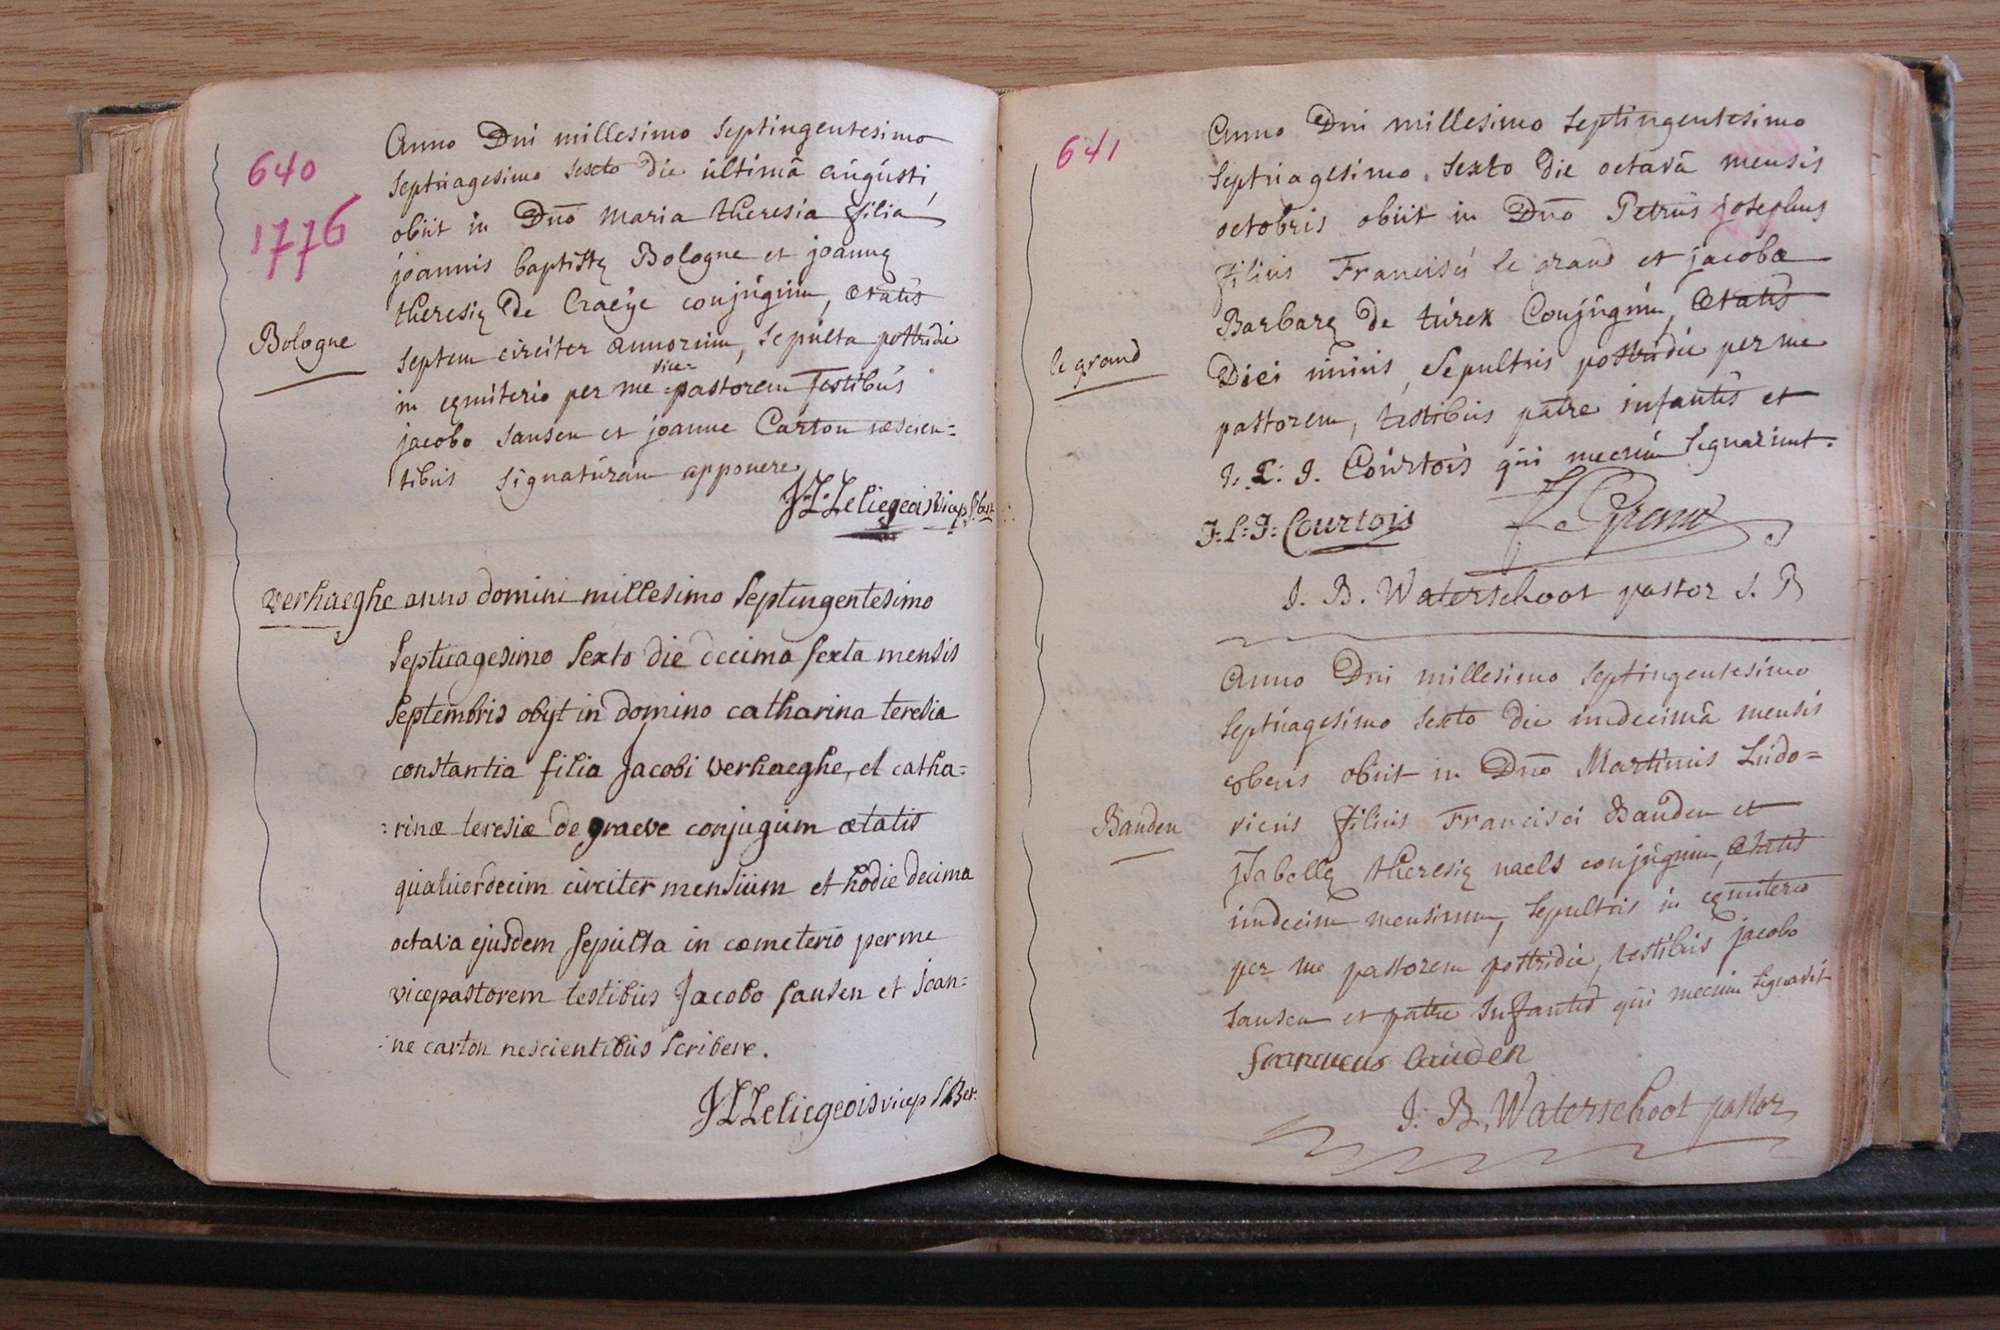 640
1776
Anno Dni millesimo septingentesimo
septuagesimo sexto die ultimâ augusti,
obiit in Dno Maria theresia filia
joannis baptistę Bologne et joannę
theresię de Craeye conjugum, ætatis
Bologne
septem circiter annorum, sepulta postridie
in cęmiterio per me vice-pastorem testibus
jacobo sansen et joanne Carton nescien=
tibus signaturam apponere
J:L:Leliegeois vicep
verhaeghe anno domini millesimo septingentesimo
septuagesimo sexto die decima sexta mensis
septembris obijt in domino catharina teresia
constantia filia jacobi verhaeghe, et catha=
:rinæ teresiæ de graeve conjugum ætatis
quatuordecim circiter mensium et hodie decima
octava ejusdem sepulta in cœmeterio per me
vicepastorem testibus jacobo sansen et joan=
:ne carton nescientibus scribere.
JLLeliegeois vicep
641
Anno Dni millesimo septingentesimo
septuagesimo sexto die octavâ mensis
octobris obiit in Dno Petrus josephus
filius Francisci le grand et jacobæ
Barbarę de turck Conjugum, ætatis
le grand
Diei unius, sepultus postridie per me
pastorem, testibus patre infantis et
J. L. J. Courtois qui mecum signarunt.
J: L: J: Courtois Le Grand
J. B. Waterschoot pastor S. B
Anno Dni millesimo septingentesimo
septuagesimo sexto die undecimâ mensis
8bris obiit in Dno Martinus Ludo=
Bauden
vicus filius Francisci Bauden et
jsabellę theresię naels conjugum, ætatis
undecim mensium, sepultus in cęmiterio
per me pastorem postridie, testibus jacobo
sansen et patre infantis qui mecum signavit
franciscus bauden
J. B. Waterschoot pastor